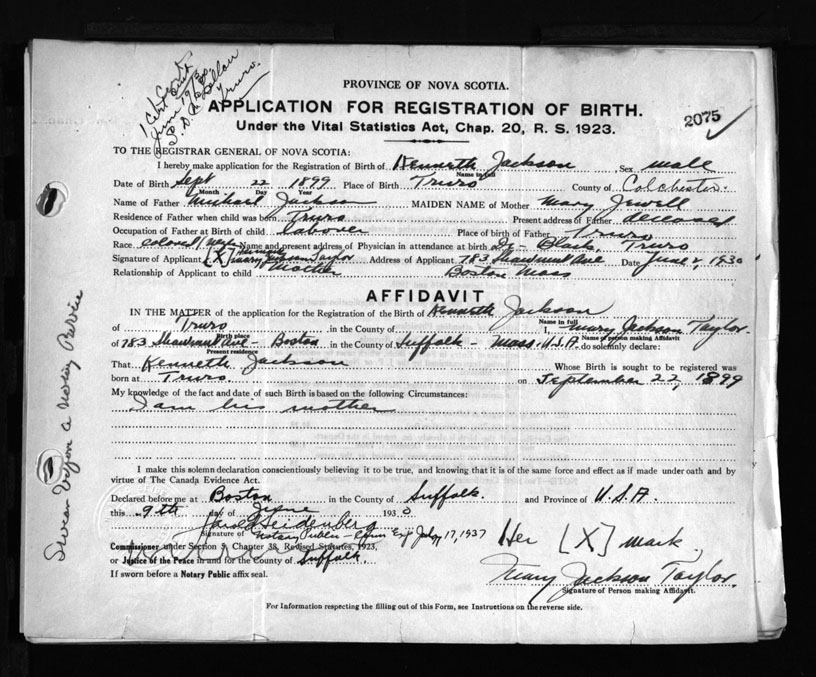 1 Cert.
June 19/30
Truro.
PROVINCE OF NOVA SCOTIA.
APPLICATION FOR REGISTRATION OF BIRTH.
2075
Under the Vital Statistics Act, Chap. 20, R. S. 1923.
TO THE REGISTRAR GENERAL OF NOVA SCOTIA:
I hereby make application for the Registration of Birth of Kenneth Jackson Sex male
Name in full
Date of Birth Sept 22 1899 Place of Birth Truro County of Colchester
Month Day Year
Name of Father Michael Jackson MAIDEN NAME of Mother Mary Jewell
Residence of Father when child was born Truro Present address of Father deceased
Occupation of Father at Birth of child laborer Place of birth of Father Truro
Race colored Name and present address of Physician in attendance at birth Dr Black. Truro
Signature of Applicant [X] Mary Jackson Taylor Address of Applicant 783 Shawmut Ave Date June 2, 1930
Relationship of Applicant to child Mother Boston Mass
AFFIDAVIT
IN THE MATTER of the application for the Registration of the Birth of Kenneth Jackson
Name in full
of Truro in the County of I, Mary Jackson Taylor
Birth place Name of person making Affidavit
of 783 Shawmut Ave - Boston in the County of Suffolk - Mass. U.S.A. do solemnly declare:
Present residence
That Kenneth Jackson Whose Birth is sought to be registered was
born at Truro. on September 22, 1899
My knowledge of the fact and date of such Birth is based on the following Circumstances:
I am his mother
I make this solemn declaration conscientiously believing it to be true, and knowing that it is of the same force and effect as if made under oath and by
virtue of The Canada Evidence Act.
Declared before me at Boston in the County of Suffolk. and Province of U.S.A.
this 9th day of June 1930
Signature of Notary Public 17, 1937
Her [X] mark.
Commissioner under Section 5, Chapter 38, Revised Statutes, 1923,
or Justice of the Peace in and for the County of Suffolk.
Mary Jackson Taylor.
Signature of Person making Affidavit.
If sworn before a Notary Public affix seal.
For Information respecting the filling out of this Form, see Instructions on the reverse side.
a Notary